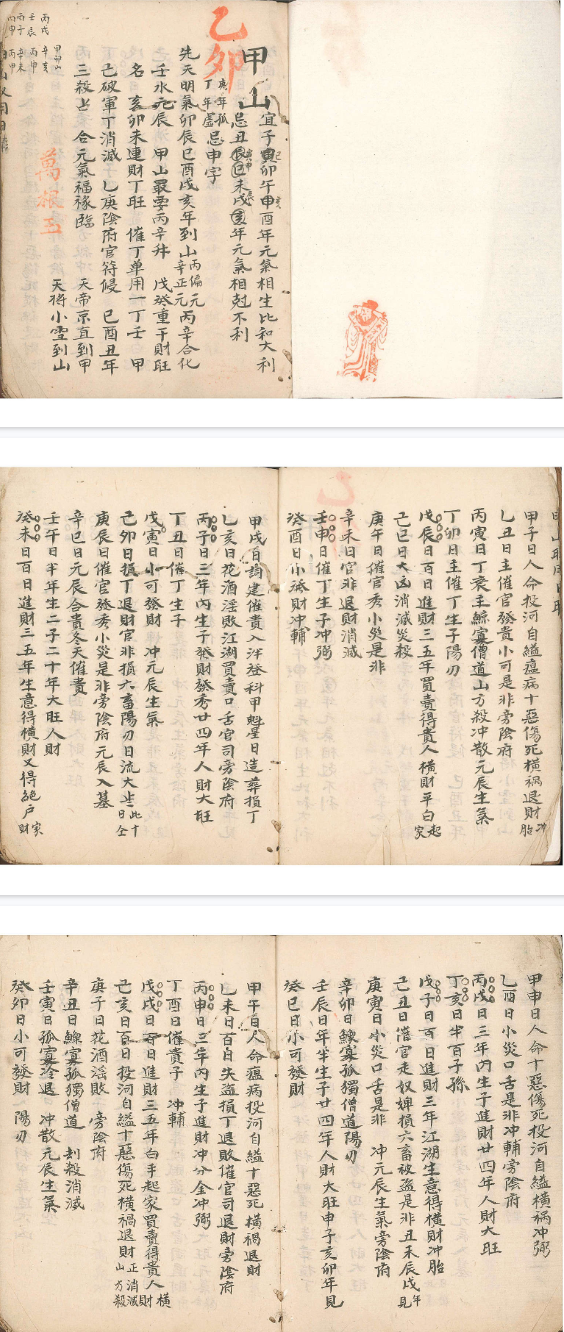 乙卯
甲山
宜子寅卯午申酉年元氣相生比和大利
忌丑辰巳未戌亥年元氣相尅不利
庚年孤
丁年虛
忌申字
先天明氣卯辰巳酉戌亥年到山
丙偏元
辛正元
丙辛合化
之壬水死辰 甲山最要丙辛秌 戊癸重干財旺
名 亥卯未連財丁旺 催丁单用一丁 甲
己破軍丁消滅 乙庚陰府官符侵 巳酉丑年
三殺占 合元氣福祿臨 天帝京直到甲
天将小雪到山
萬根玉
甲子日人命投河自縊瘟病十惡傷死橫禍退財
冲胎
乙丑日主催官發貴小可是非旁陰府
丙寅日丁衰主鰥寡僧道山方殺冲散元辰生氣
丁卯日主催丁生子陽刃
戊辰日百日進財三五年買賣得貴人橫財平白起家
己巳日大凶消滅災殺
庚午日催官秀小災是非
辛未日官非退財消滅
壬申日催丁生子冲弼
癸酉日小發財冲輔
甲戌日造建催貴入泮發科甲魁星日造葬損丁
乙亥日花酒淫敗江湖買賣口舌官司旁陰府
丙子日三年內生子發財發秀廿四年人財大旺
丁丑日催丁生子
戊寅日小可發財 冲元辰生氣
己卯日損丁退財官非損六畜陽刃日流大
此十日仝
庚辰日催官發秀小災是非旁陰府元辰入墓
辛巳日元辰合貴冬天催貴
壬午日半年生二子二十年大旺人財
癸未日百日進財三五年生意得橫財又得絕戶家財
甲申日人命十惡傷死投河自縊橫禍冲弼
乙酉日小災口舌是非冲輔旁陰府
丙戌日三年內生子進財廿四年人財大旺
丁亥日半百子孫
戊子日百日進財三年江湖生意得橫財冲胎
己丑日落官走奴婢損六畜被盜是非丑未辰戌年見
庚寅日小災口舌是非 冲元辰生氣旁陰府
辛卯日鰥寡孤獨僧道陽刃
壬辰日年半生子廿四年人財大旺申子亥卯年見
癸巳日小可發財
甲午日人命瘟病投河自縊十惡死橫禍退財
乙未日百日失盜損丁退敗催官司退財旁陰府
丙申日三年內生子進財冲分金冲弼
丁酉日催貴子 冲輔
戊戌日百日進財三五年白手起家買賣得貴人橫財
己亥日百日投河自縊十惡傷死橫禍退財
正消滅
山方殺
庚子日花酒淫敗 旁陰府
辛丑日鰥寡孤獨僧道 刦殺消滅
壬寅日孤寡冷退 冲散元辰生氣
癸卯日小可發財 陽刃